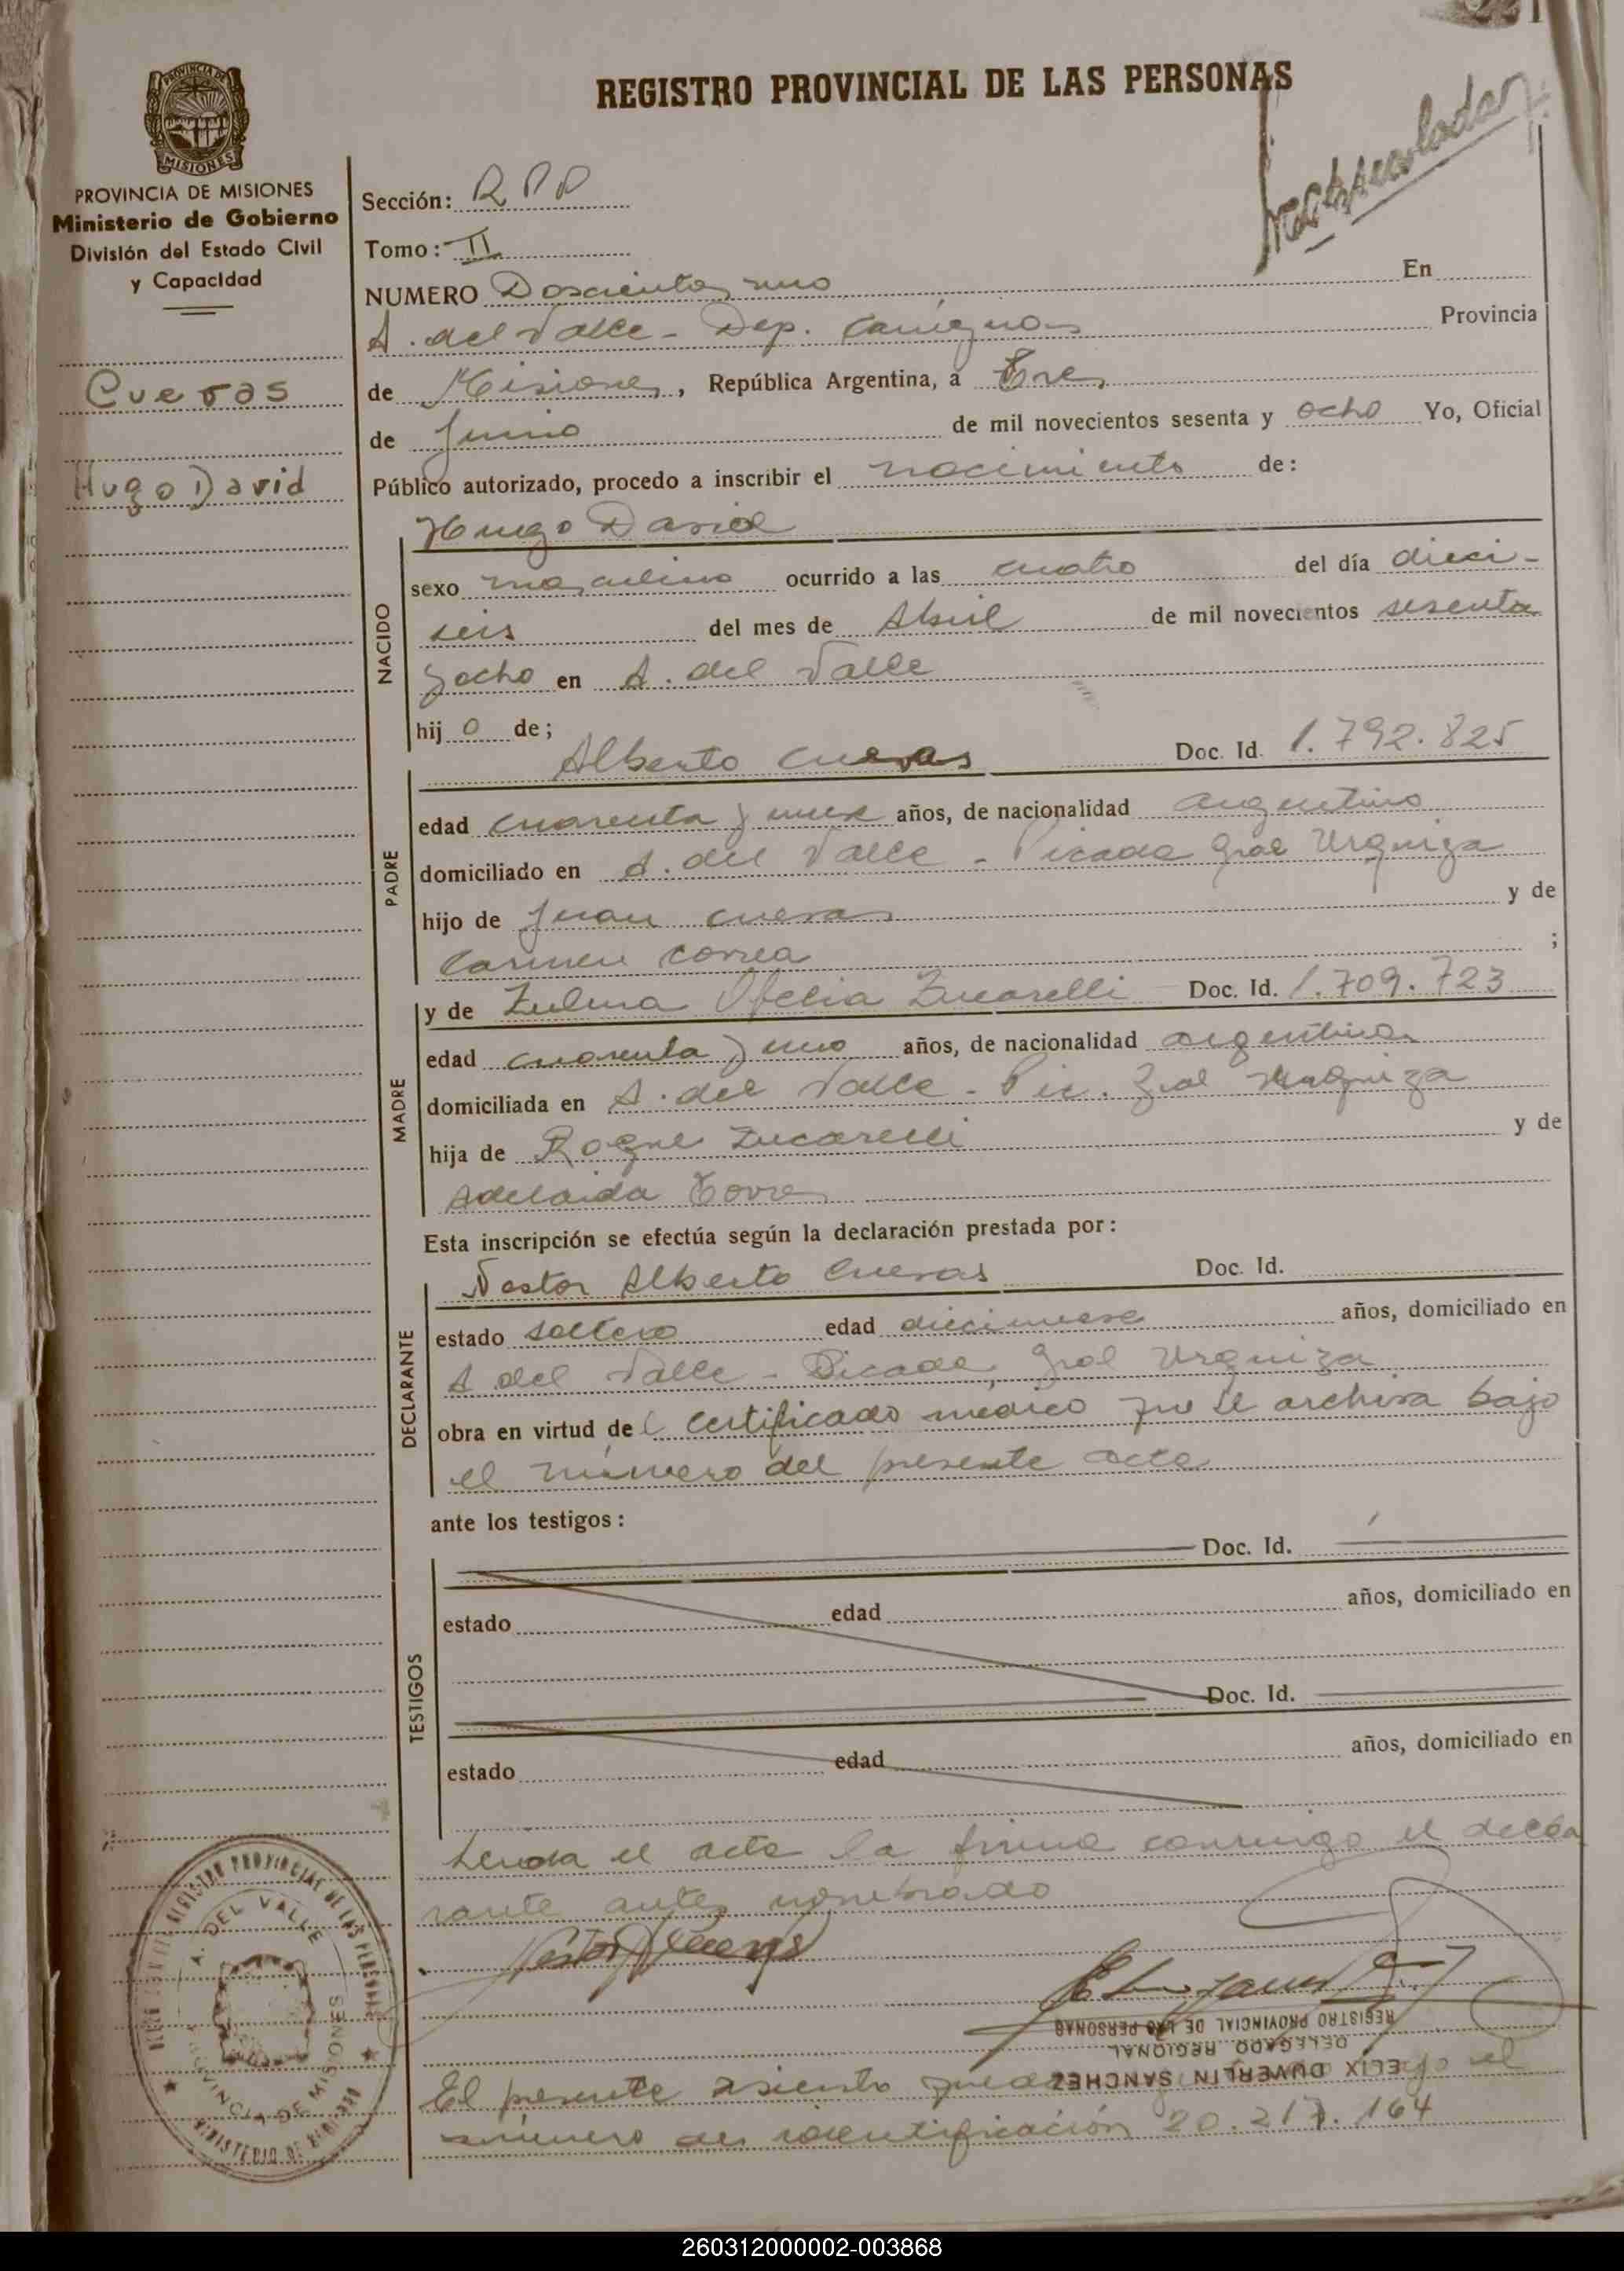 REGISTRO PROVINCIAL DE LAS PERSONAS
PROVINCIA DE
MISIONES
PROVINCIA DE MISIONES
Ministerio de Gobierno
División del Estado Civil
y Capacidad
Cuevas
Hugo David
Sección: R P P
Tomo: II
NUMERO Doscientos uno En
A. del Valle - Dep. Cainguas Provincia
de Misiones, República Argentina, a Tres
de Junio de mil novecientos sesenta y ocho Yo, Oficial
Público autorizado, procedo a inscribir el nacimiento de:
NACIDO
Hugo David
sexo masculino ocurrido a las cuatro del día dieci-
seis del mes de Abril de mil novecientos sesenta
y ocho en A. del Valle
hij o de;
PADRE
Alberto Cuevas Doc. Id. 1.792.825
edad cuarenta y nueve años, de nacionalidad argentino
domiciliado en A. del Valle - Picada Gral Urquiza
hijo de Juan Cuevas y de
Carmen Correa ;
MADRE
y de Zulma Ofelia Zucarelli Doc. Id. 1.709.723
edad cuarenta y uno años, de nacionalidad argentina
domiciliada en A. del Valle - Pic. Gral Urquiza
hija de Roque Zucarelli y de
Adelaida Torres
Esta inscripción se efectúa según la declaración prestada por:
DECLARANTE
Nestor Alberto Cuevas Doc. Id.
estado soltero edad diecinueve años, domiciliado en
A del Valle - Picada, Gral Urquiza
obra en virtud del certificado medico que se archiva bajo
el número del presente acta
ante los testigos:
TESTIGOS
Doc. Id.
estado edad años, domiciliado en
Doc. Id.
estado edad años, domiciliado en
Leida el acta la firma conmigo el decla
rante antes nombrado
REGISTRO PROVINCIAL DE LAS PERSONAS
A. DEL VALLE
PROVINCIA DE MISIONES
MINISTERIO DE GOBIERNO
REGISTRO PROVINCIAL DE LAS PERSONAS
DELEGADO REGIONAL
FELIX DUVERLIN SANCHEZ
El presente asiento el
número de identificación 20.217.164
260312000002-003868